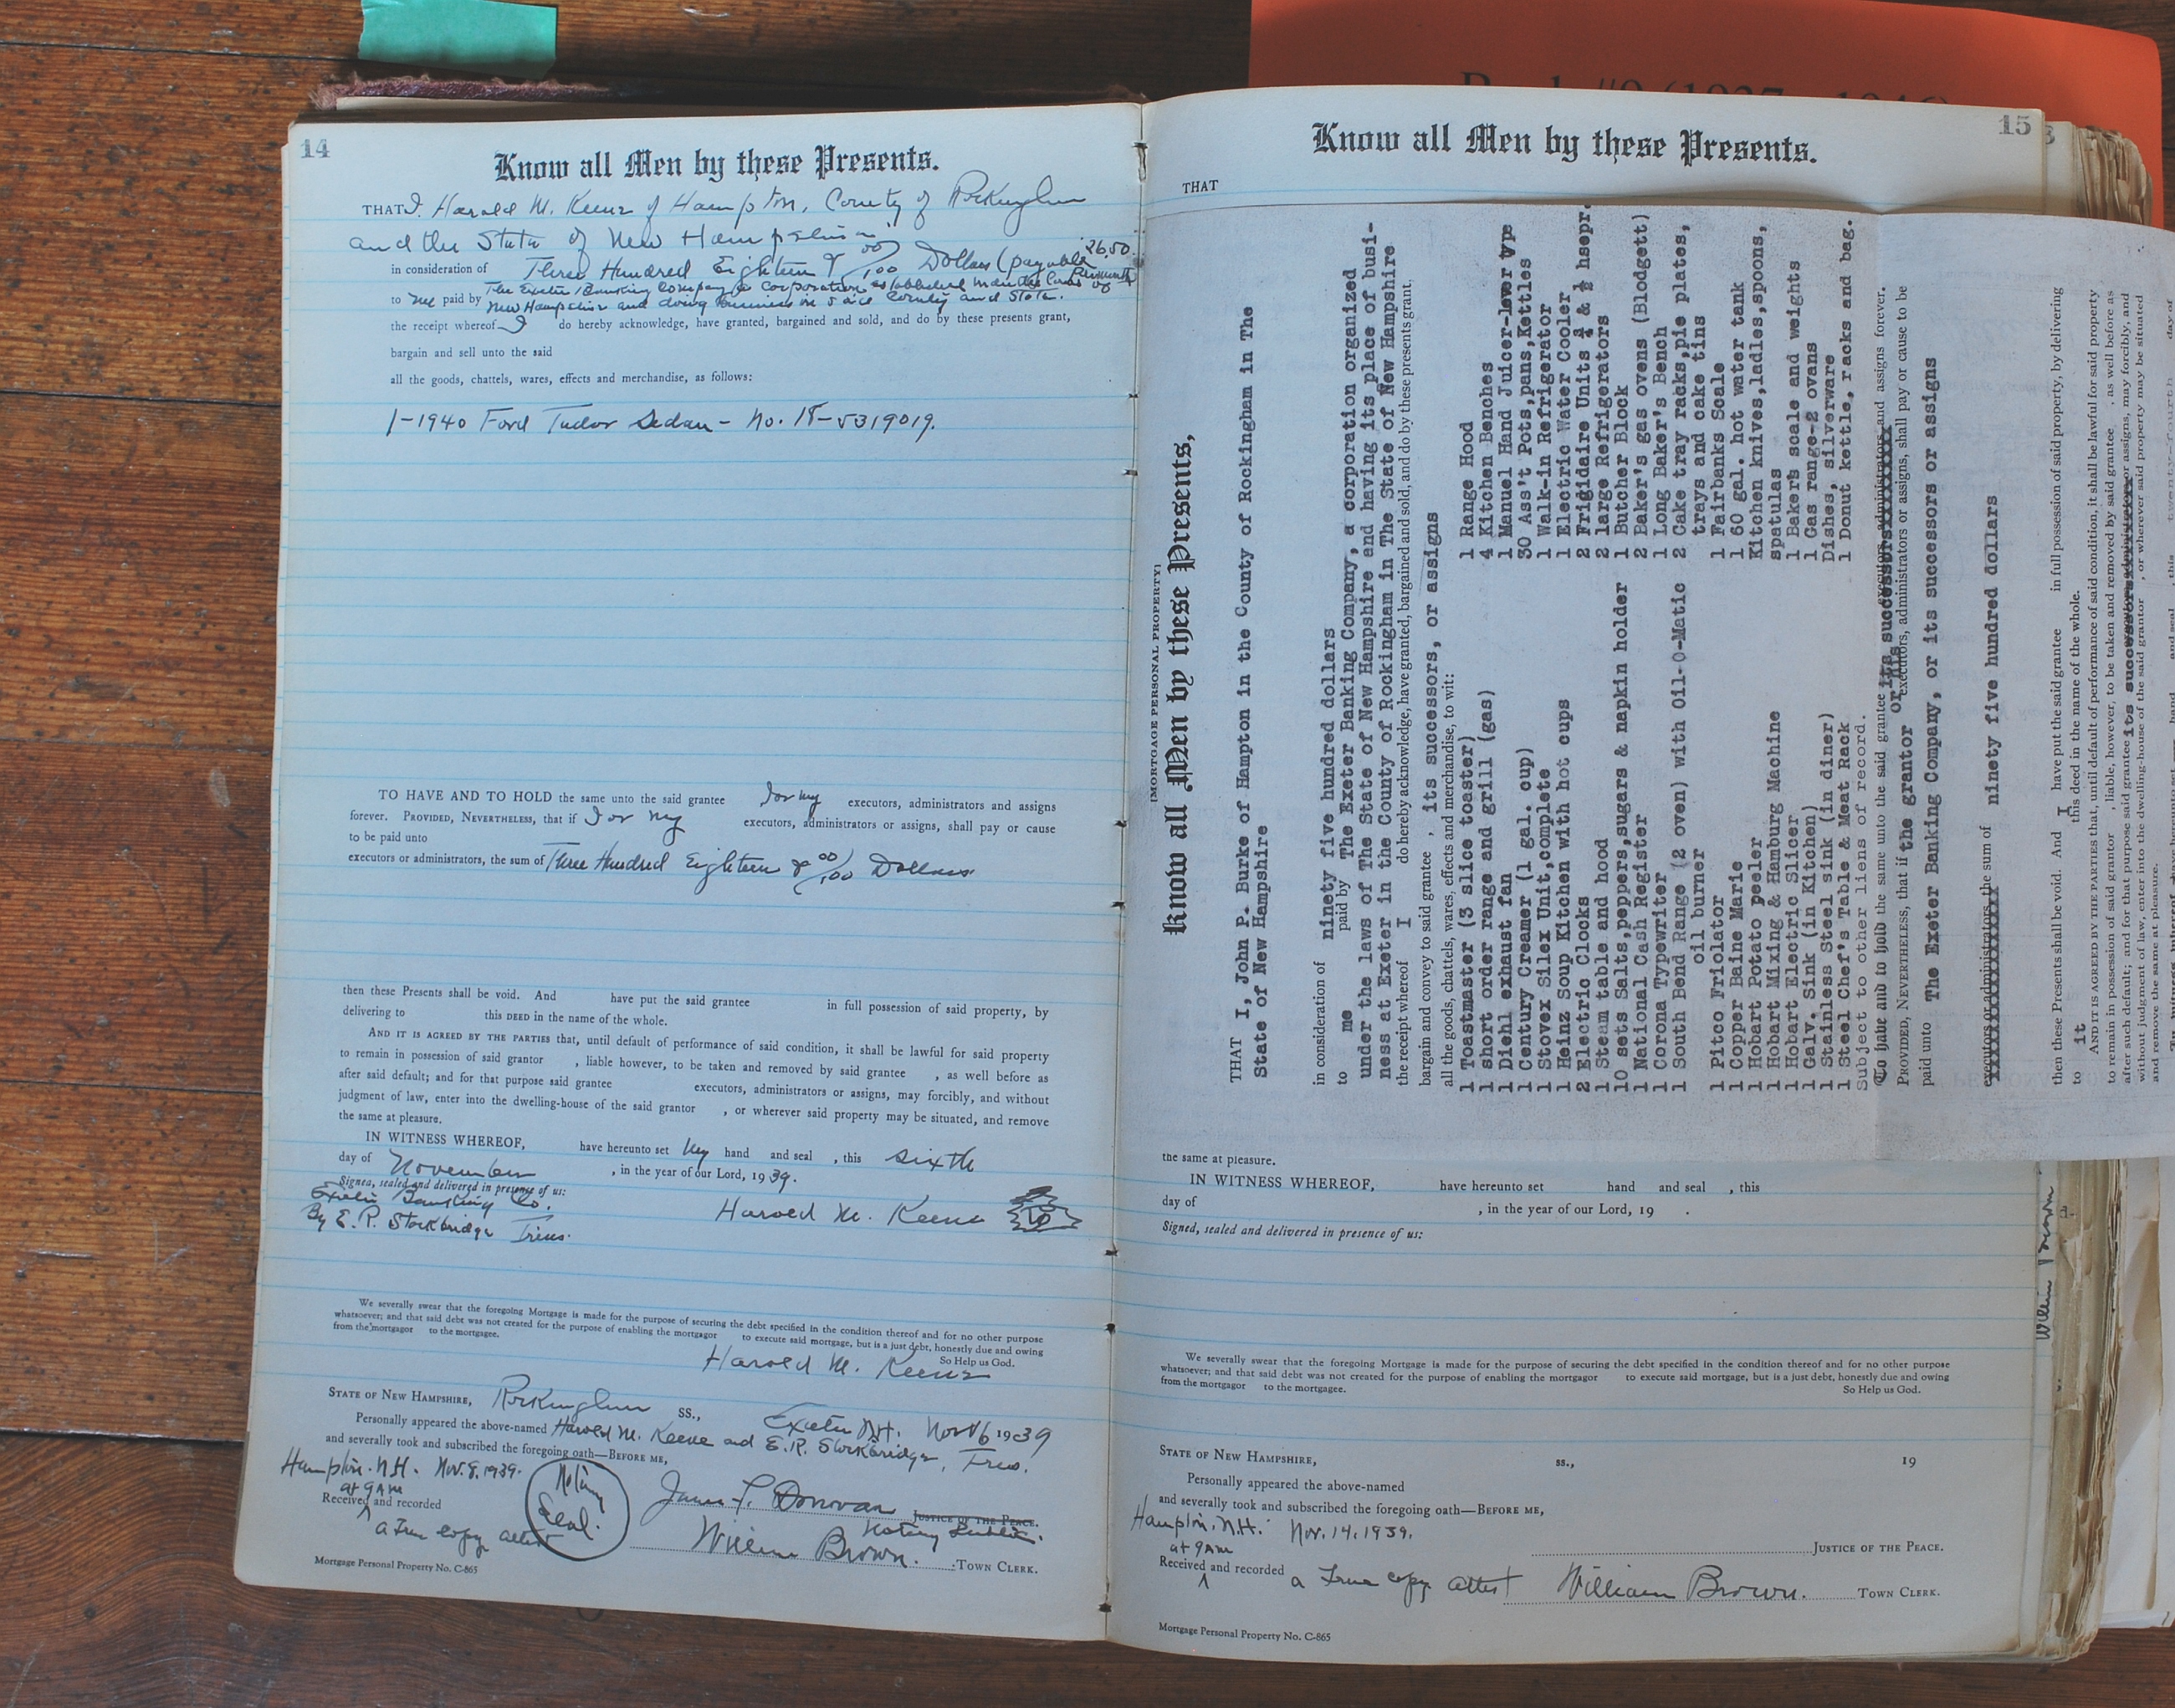 14
Know all Men by these Presents.
THAT I, Harold M. Keene of Hampton, County of Rockingham
and the State of New Hampshire
in consideration of Three Hundred Eighteen & 00/100 Dollars (payable 26.50 per month
to me paid by The Exeter Banking Company a corporation established under the laws of
New Hampshire and doing business in said County and State.
the receipt whereof I do hereby acknowledge, have granted, bargained and sold, and do by these presents grant,
bargain and sell unto the said
all the goods, chattels, wares, effects and merchandise, as follows:
1-1940 Ford Tudor Sedan - No. 18-5319019.
TO HAVE AND TO HOLD the same unto the said grantee I or my executors, administrators and assigns
forever. PROVIDED, NEVERTHELESS, that if I or my executors, administrators or assigns, shall pay or cause
to be paid unto
executors or administrators, the sum of Three Hundred Eighteen & 00/100 Dollars
then these Presents shall be void. And have put the said grantee in full possession of said property, by
delivering to this DEED in the name of the whole.
AND IT IS AGREED BY THE PARTIES that, until default of performance of said condition, it shall be lawful for said property
to remain in possession of said grantor , liable however, to be taken and removed by said grantee , as well before as
after said default; and for that purpose said grantee executors, administrators or assigns, may forcibly, and without
judgment of law, enter into the dwelling-house of the said grantor , or wherever said property may be situated, and remove
the same at pleasure.
IN WITNESS WHEREOF, have hereunto set my hand and seal , this sixth
day of November , in the year of our Lord, 1939.
Signed, sealed and delivered in presence of us:
Exeter Banking Co.
By E. R. Stockbridge Treas.
Harold M. Keene
We severally swear that the foregoing Mortgage is made for the purpose of securing the debt specified in the condition thereof and for no other purpose
whatsoever; and that said debt was not created for the purpose of enabling the mortgagor to execute said mortgage, but is a just debt, honestly due and owing
from the mortgagor to the mortgagee. So Help us God.
Harold M. Keene
STATE OF NEW HAMPSHIRE, Rockingham SS., Exeter N.H. Nov 6 1939
Personally appeared the above-named Harold M. Keene and E.R. Stockbridge, Treas.
and severally took and subscribed the foregoing oath—BEFORE ME,
Hampton. N.H. Nov. 8. 1939.
at 9 AM
Received and recorded
a True copy attest
Notary Seal.
James L. Donovan JUSTICE OF THE PEACE.
Notary Public.
William Brown. TOWN CLERK.
Mortgage Personal Property No. C-865
15
Know all Men by these Presents.
THAT
[MORTGAGE PERSONAL PROPERTY]
Know all Men by these Presents,
THAT I, John P. Burke of Hampton in the County of Rockingham in The
State of New Hampshire
in consideration of ninety five hundred dollars
to me paid by The Exeter Banking Company, a corporation organized
under the laws of The State of New Hampshire and having its place of busi-
ness at Exeter in the County of Rockingham in The State of New Hampshire
the receipt whereof I do hereby acknowledge, have granted, bargained and sold, and do by these presents grant,
bargain and convey to said grantee , its successors, or assigns
all the goods, chattels, wares, effects and merchandise, to wit:
1 Toastmaster (3 slice toaster)
1 short order range and grill (gas)
1 Diehl exhaust fan
1 Century Creamer (1 gal. cup)
1 Stovex Silex Unit,complete
1 Heinz Soup Kitchen with hot cups
2 Electric Clocks
1 Steam table and hood
10 sets Salts,peppers,sugars & napkin holder
1 National Cash Register
1 Corona Typewriter
1 South Bend Range (2 oven) with Oil-O-Matic
oil burner
1 Pitco Friolator
1 Copper Baine Marie
1 Hobart Potato peeler
1 Hobart Mixing & Hamburg Machine
1 Hobart Electric Slicer
1 Galv. Sink (in Kitchen)
1 Stainless Steel sink (in diner)
1 Steel Chef's Table & Meat Rack
Subject to other liens of record.
1 Range Hood
4 Kitchen Benches
1 Manuel Hand Juicer-lever type
30 Ass't Pots,pans,Kettles
1 Walk-in Refrigerator
1 Electric Water Cooler
2 Frigidaire Units ¼ & ½ hsepr.
2 large Refrigerators
1 Butcher Block
2 Baker's gas ovens (Blodgett)
1 Long Baker's Bench
2 Cake tray racks,pie plates,
trays and cake tins
1 Fairbanks Scale
1 60 gal. hot water tank
Kitchen knives,ladles,spoons,
spatulas
1 Baker's scale and weights
1 Gas range-2 ovans
Dishes, silverware
1 Donut kettle, racks and bag.
To have and to hold the same unto the said grantee its successors executors, administrators and assigns forever.
PROVIDED, NEVERTHELESS, that if the grantor or his executors, administrators or assigns, shall pay or cause to be
paid unto The Exeter Banking Company, or its successors or assigns
executors or administrators, the sum of ninety five hundred dollars
then these Presents shall be void. And I have put the said grantee in full possession of said property, by delivering
to it this deed in the name of the whole.
AND IT IS AGREED BY THE PARTIES that, until default of performance of said condition, it shall be lawful for said property
to remain in possession of said grantor , liable, however, to be taken and removed by said grantee , as well before as
after such default; and for that purpose said grantee its successors or assigns, may forcibly, and
without judgment of law, enter into the dwelling-house of the said grantor , or wherever said property may be situated
and remove the same at pleasure.
the same at pleasure.
IN WITNESS WHEREOF, have hereunto set hand and seal , this
day of , in the year of our Lord, 19 .
Signed, sealed and delivered in presence of us:
We severally swear that the foregoing Mortgage is made for the purpose of securing the debt specified in the condition thereof and for no other purpose
whatsoever; and that said debt was not created for the purpose of enabling the mortgagor to execute said mortgage, but is a just debt, honestly due and owing
from the mortgagor to the mortgagee. So Help us God.
STATE OF NEW HAMPSHIRE, ss., 19
Personally appeared the above-named
and severally took and subscribed the foregoing oath—BEFORE ME,
Hampton. N.H. Nov. 14. 1939.
at 9 AM
JUSTICE OF THE PEACE.
Received and recorded a True copy attest William Brown. TOWN CLERK.
Mortgage Personal Property No. C-865
William Brown